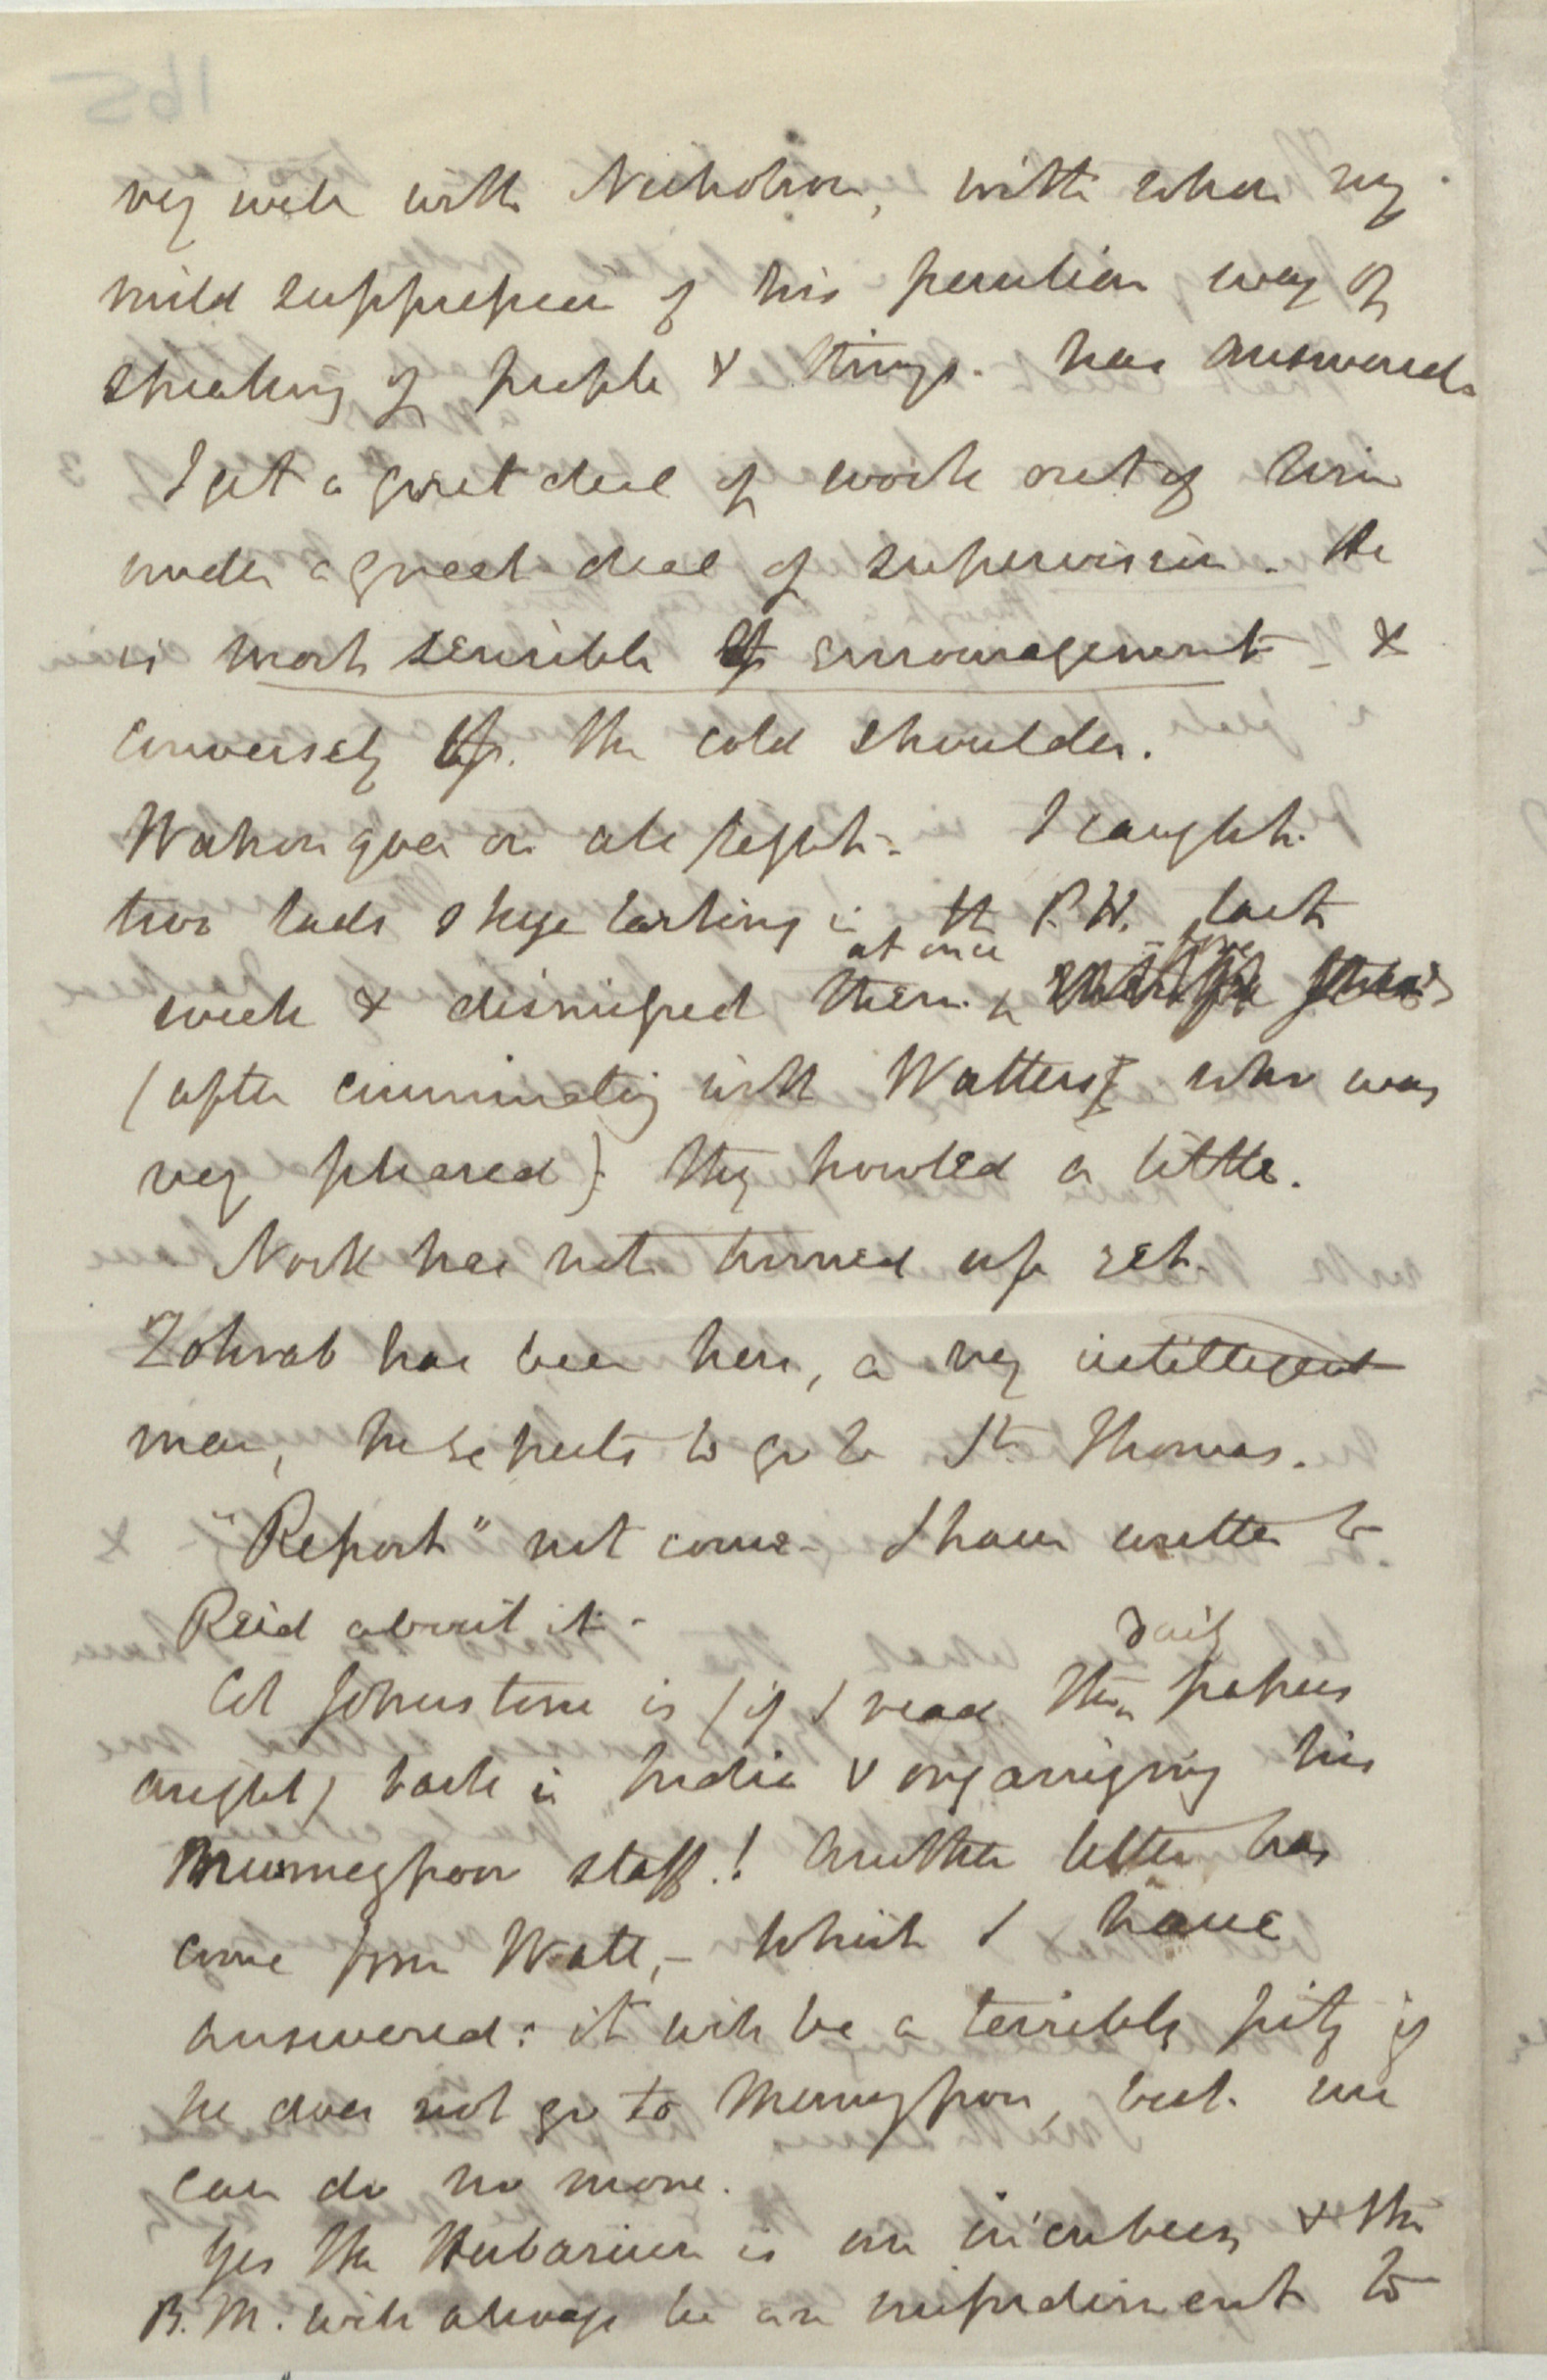 very well with Nicholson, with whom my
mild suppression of his peculiar way of
speaking of people & things. has answered.
I get a great deal of work out of him
under a great deal of supervision. He
is most sensible of encouragement - &
conversely of the cold shoulder.
Watson goes on all right. I caught
two lads skylarking in the P.H. last
week & dismissed them at once
(after communicating with Watters who was
very pleased) they howled a little.
North has not turned up yet.
Zohrab has been here, a very intelligent
man, he expects to go to St. Thomas.
"Report" not come - I have written to
Reid about it -
Col Johnstone is (if I read the daily papers
aright) back in India & organizing his
Munneypoor staff! Another letter has
come from Watt, - which I have
answered: it will be a terrible pity if
he does not go to Munnypoor, but we
can do no more.
Yes the Herbarium is an incubus & the
B.M. will always be an impediment to